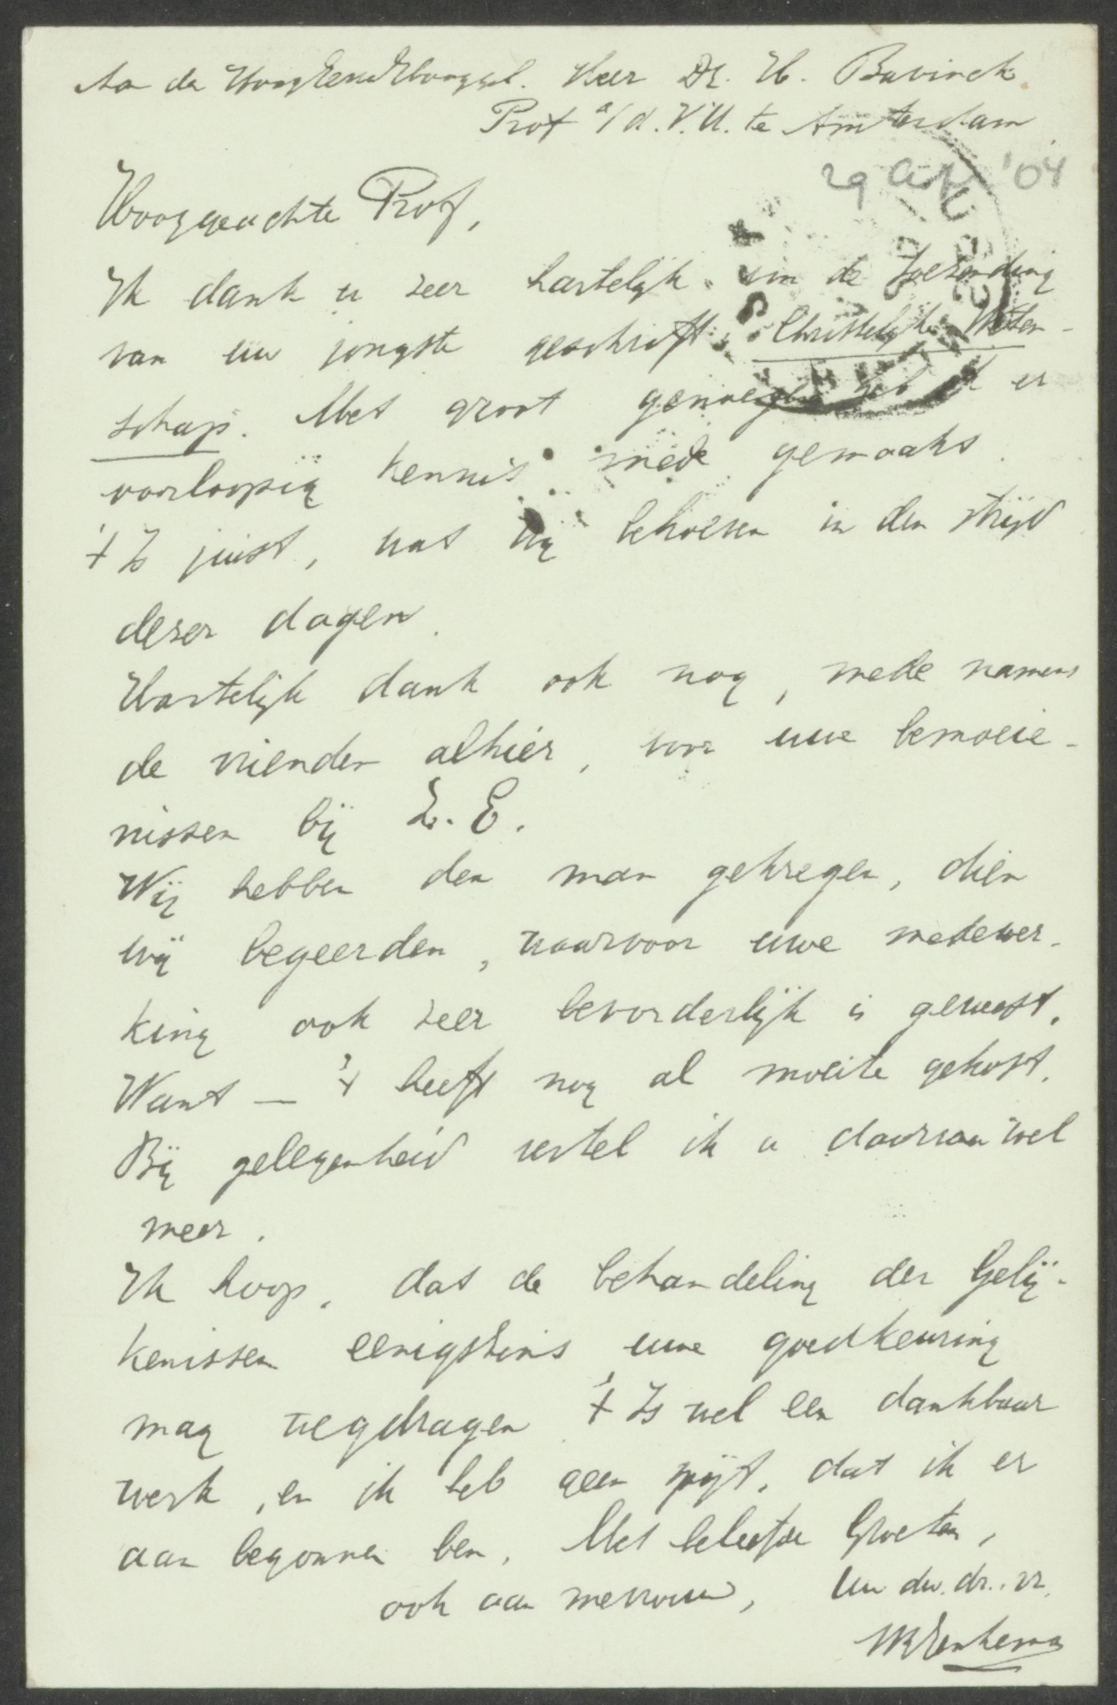 Aan den HoogEerw. Hooggel. Heer Dr. H. Bavinck.
Prof a/d. V.U. te Amsterdam
29 Apr '04
Hooggeachte Prof,
Ik dank u zeer hartelijk om de toezending
van uw jongste geschrift: Christelijke Weten-
schap. Met groot genoegen heb ik er
voorloopig kennis mede gemaakt.
't Is juist, wat wij behoeven in den strijd
dezer dagen.
Hartelijk dank ook nog, mede namens
de vrienden alhier, voor uwe bemoeie-
nissen bij Z. E.
Wij hebben den man gekregen, dien
wij begeerden, waarvoor uwe medewer-
king ook zeer bevorderlijk is geweest.
Want — 't heeft nog al moeite gekost.
Bij gelegenheid vertel ik u daarvan wel
meer.
Ik hoop, dat de behandeling der Gelij-
kenissen eenigszins uwe goedkeuring
mag wegdragen 't Is wel een dankbaar
werk, en ik heb geen spijt, dat ik er
aan begonnen ben. Met beleefde Groeten,
ook aan mevrouw, Uw dw. dr. vr.